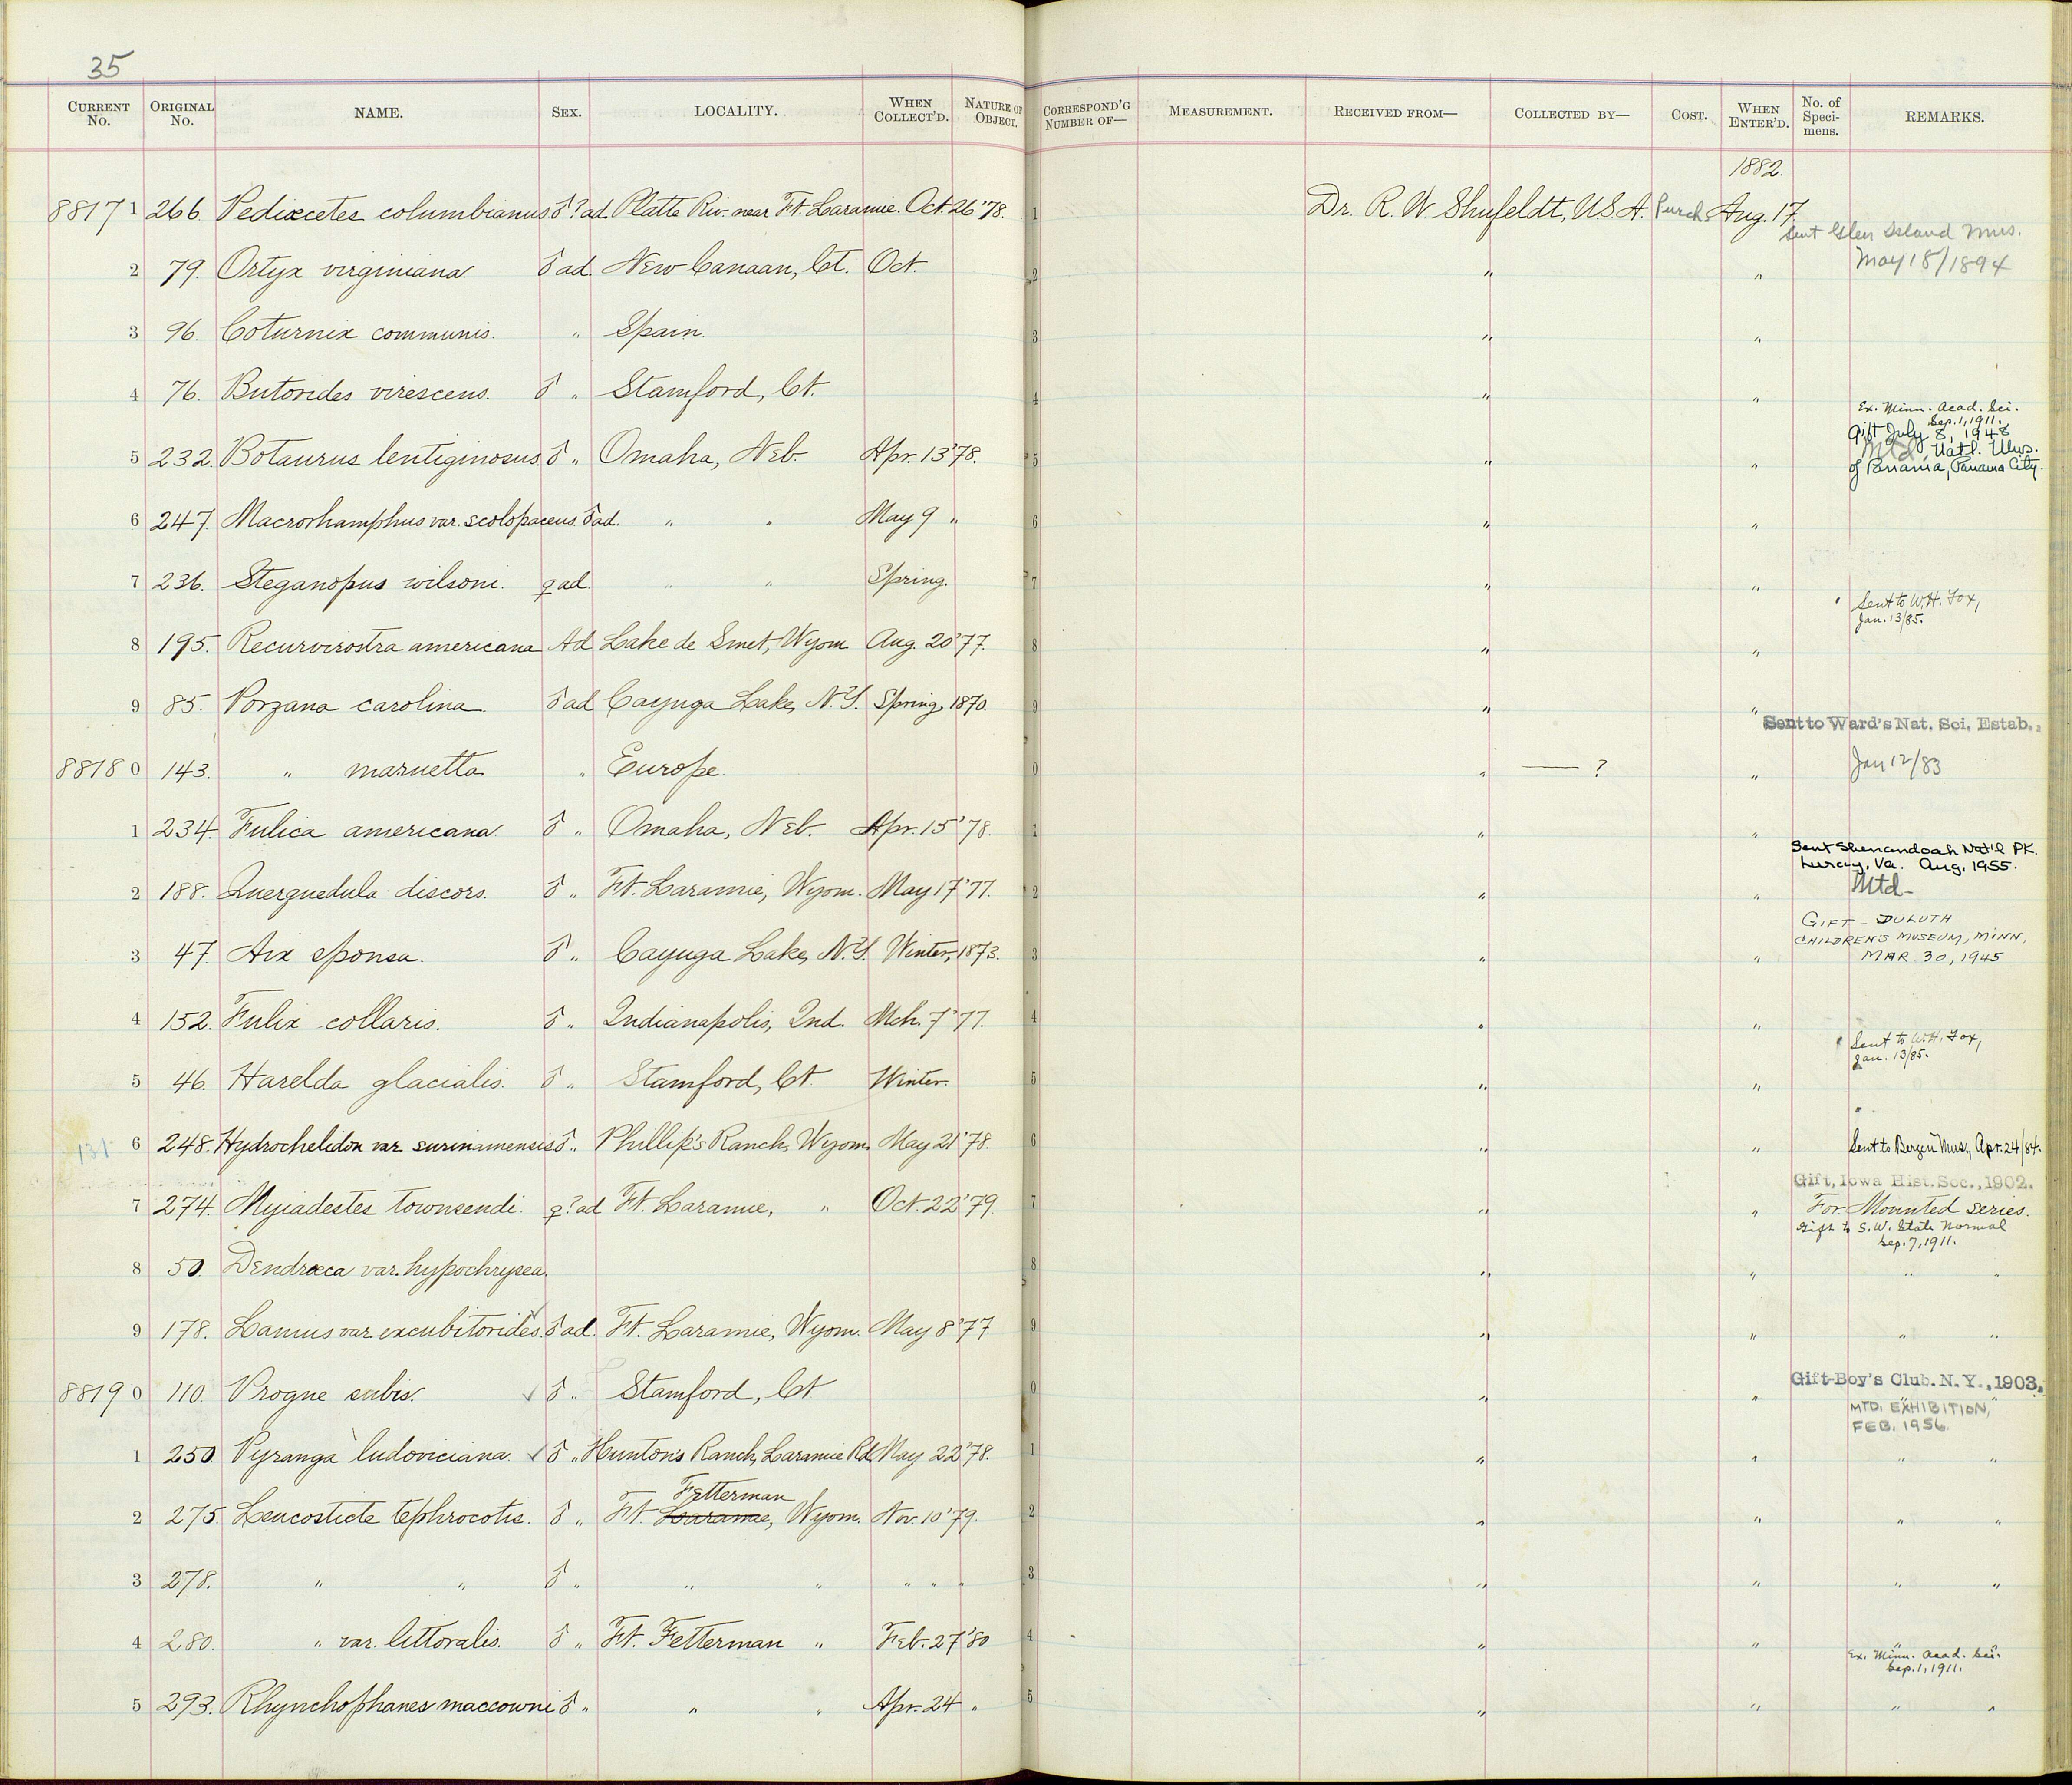 35
CURRENT No. ORIGINAL No. NAME. SEX. LOCALITY. WHEN COLLECT'D. NATURE OF OBJECT. CORRESPOND'G NUMBER OF— MEASUREMENT. RECEIVED FROM— COLLECTED BY— COST. WHEN ENTER'D. No. of Speci-mens. REMARKS.
1882.
8817 1 266. Pediœcetes columbianus ♂? ad. Platte Riv. near Ft. Laramie. Oct. 26 '78. 1 Dr. R. W. Shufeldt, U.S.A. Purch. Aug. 17.
Sent Glen Island Mus.
May 18/1894
2 79. Ortyx virginiana ♂ ad. New Canaan, Ct. Oct. 2 " "
3 96. Coturnix communis. " Spain. 3 " "
4 76. Butorides virescens. ♂ " Stamford, Ct. 4 " "
Ex. Minn. Acad. Sci.
Sep. 1, 1911.
Gift July 8, 1948
Mtd. Natl. Mus.
of Panama, Panama City.
5 232. Botaurus lentiginosus ♂ " Omaha, Neb. Apr. 13 '78. 5 " "
6 247. Macrorhamphus var. scolopaceus. ♂ ad. " " May 9 " 6 " "
7 236. Steganopus wilsoni. ♀ ad. " " Spring. 7 " "
Sent to W.H. Fox,
Jan. 13/85.
8 195. Recurvirostra americana Ad Lake de Smet, Wyom. Aug. 20 '77. 8 " "
9 85. Porzana carolina. ♂ ad Cayuga Lake, N.Y. Spring, 1870. 9 " "
Sent to Ward's Nat. Sci. Estab.,
8818 0 143. " maruetta " Europe. 0 " — ? " Jan 12/83
1 234. Fulica americana. ♂ " Omaha, Neb. Apr. 15 '78. 1 " "
Sent Shenandoah Nat'l PK.
Luray, Va. Aug. 1955.
Mtd-
2 188. Querquedula discors. ♂ " Ft. Laramie, Wyom. May 17 '77. 2 " "
GIFT - DULUTH
CHILDREN'S MUSEUM, MINN,
MAR 30, 1945
3 47. Aix sponsa. ♂ " Cayuga Lake, N.Y. Winter, 1873. 3 " "
4 152. Fulix collaris. ♂ " Indianapolis, Ind. Mch. 7 '77. 4 " "
Sent to W.H. Fox,
Jan. 13/85.
5 46. Harelda glacialis. ♂ " Stamford, Ct. Winter. 5 " "
"
131 6 248. Hydrochelidon var. surinamensis ♂ " Phillip's Ranch, Wyom. May 21 '78. 6 " " Sent to Bergen Mus., Apr. 24/84.
Gift, Iowa Hist. Soc., 1902.
7 274. Myiadestes townsendi. ♀? ad Ft. Laramie, " Oct. 22 '79. 7 " " For Mounted series.
Gift to S.W. State Normal
Sep. 7, 1911.
8 50. Dendrœca var. hypochrysea. 8 " " " "
9 178. Lanius var. excubitorides. ♂ ad. Ft. Laramie, Wyom. May 8 '77 9 " " " "
Gift-Boy's Club. N.Y., 1903.
8819 0 110. Progne subis. ✓ ♂ " Stamford, Ct 0 " " " "
MTD. EXHIBITION,
FEB. 1956.
1 250 Pyranga ludoviciana. ✓ ♂ " Hunton's Ranch, Laramie Rd. May 22 '78. 1 " " " "
Fetterman
2 275. Leucosticte tephrocotis. ♂ " Ft. Laramie, Wyom. Nov. 10 '79. 2 " " " "
3 278. " " ♂ " " " " " " 3 " " " "
4 280. " var. littoralis. ♂ " Ft. Fetterman " Feb. 27 '80 4 " " " "
Ex. Minn. Acad. Sci.
Sep. 1, 1911.
5 293. Rhynchophanes maccowni ♂ " " " Apr. 24 " 5 " " " "